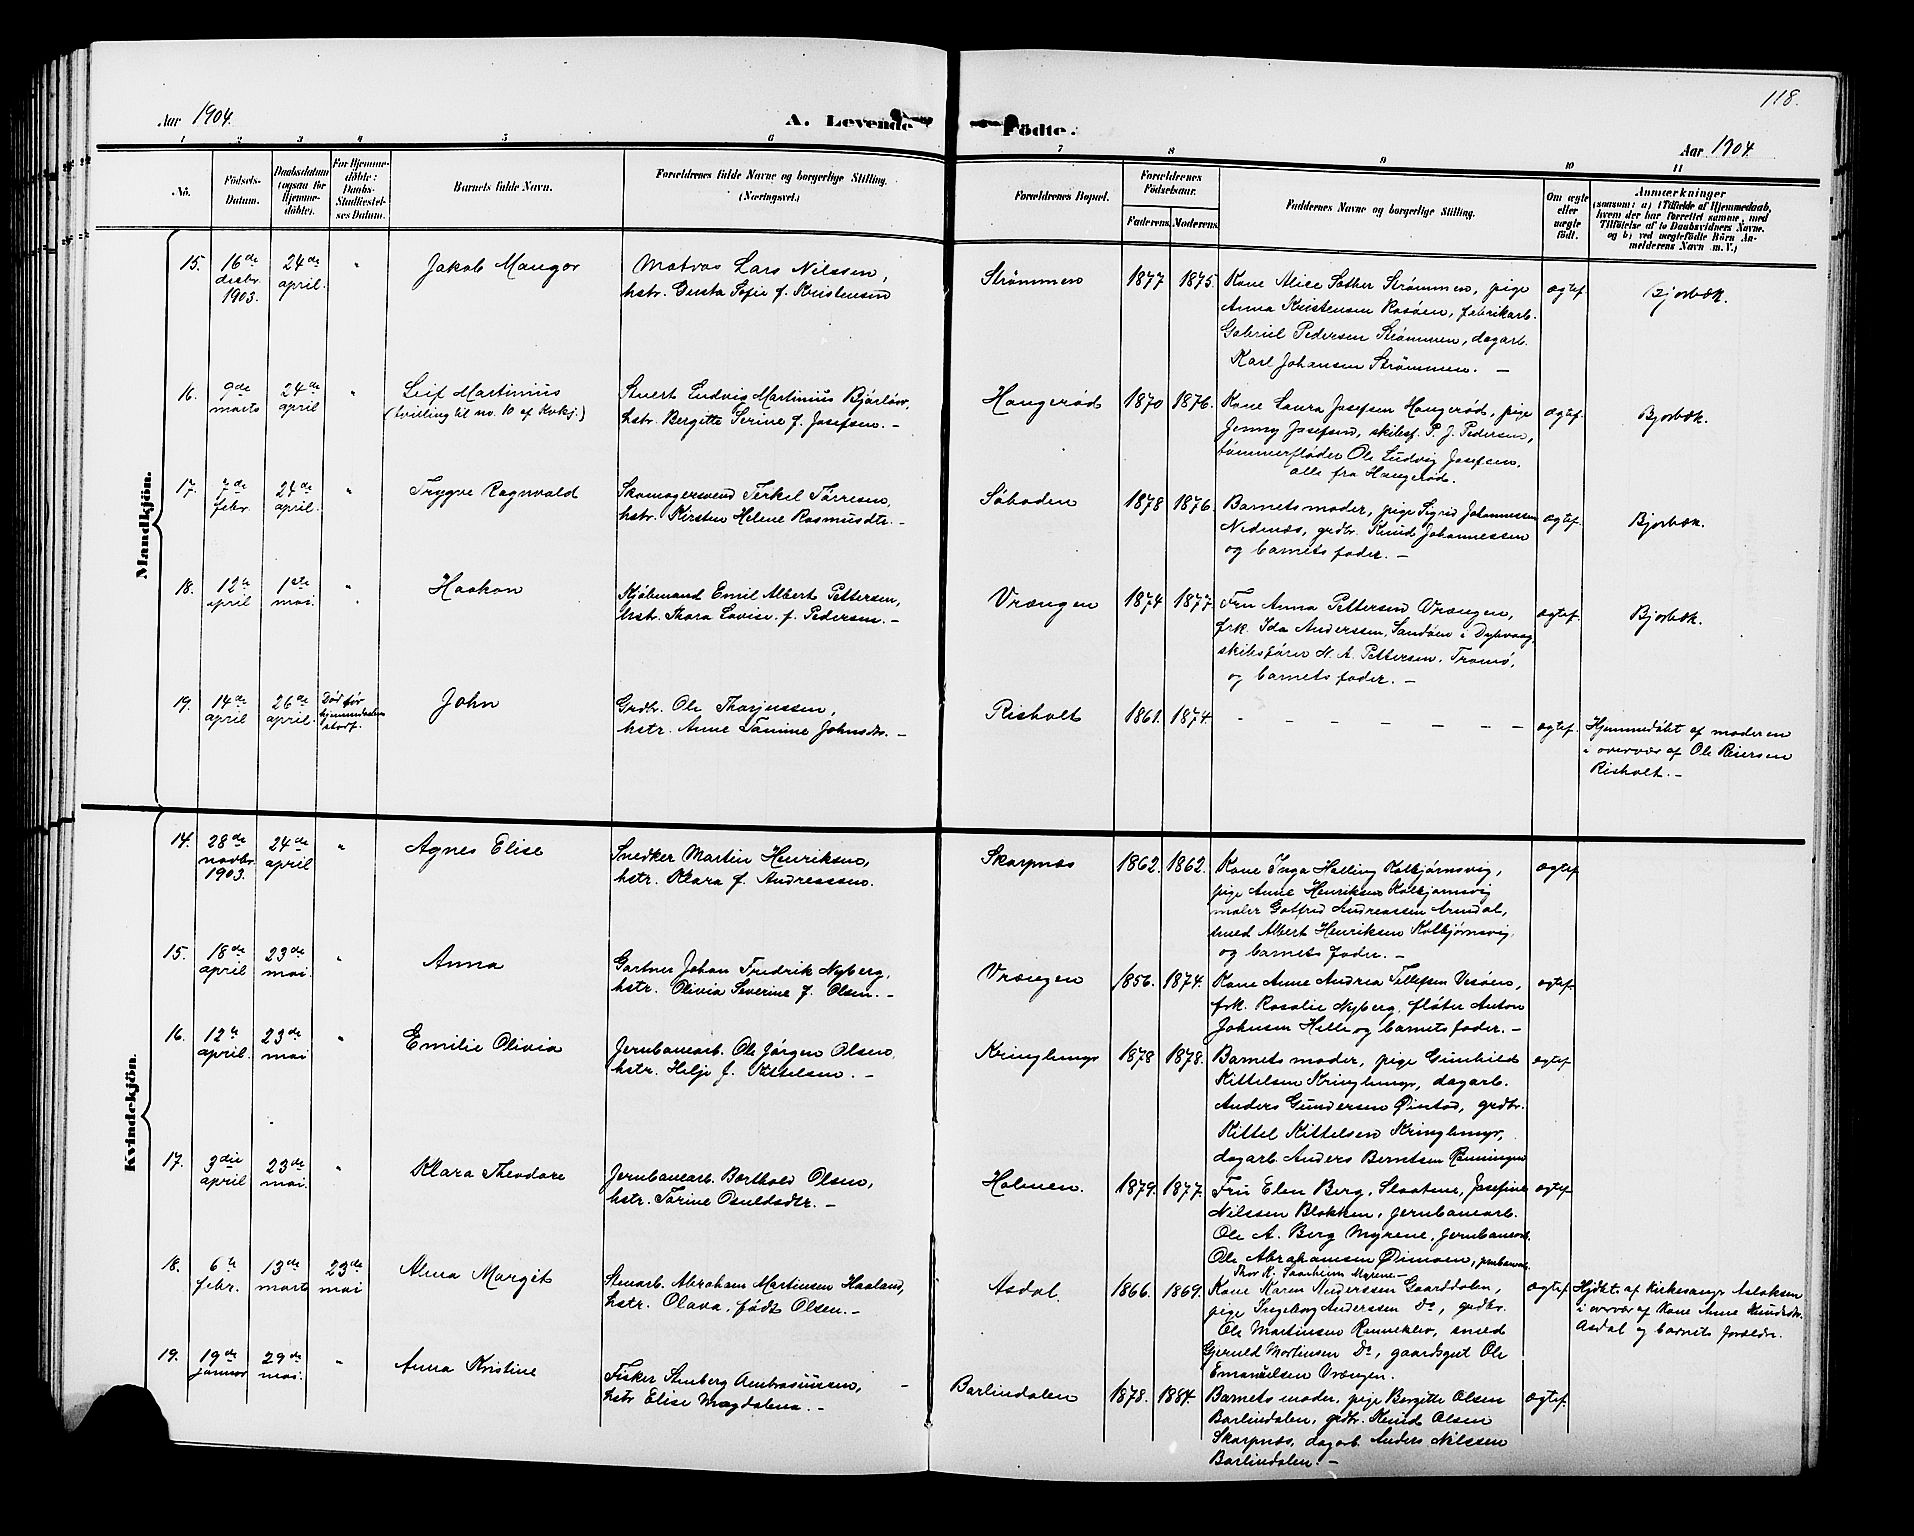 118.
Aar 1904.
A. Levende Födte.
Aar 1904
1 2 3 4 5 6 7 8 9 10 11
No.
Födsels-
Datum.
Daabsdatum
(ogsaa for
Hjemme-
döbte).
For Hjemme-
döbte:
Daabs-
Stadfæstel-
ses Datum.
Barnets fulde Navn.
Forældrenes fulde Navne og borgerlige Stilling.
(Næringsvei.)
Forældrenes Bopæl.
Forældrenes
Födselsaar.
Faderens. Moderens.
Faddernes Navne og borgerlige Stilling.
Om ægte
eller
uægte
födt.
Anmærkninger
(saasom: a) i Tilfælde af Hjemmedaab,
hvem der har forrettet samme, med
Tilföielse af to Daabsvidners Navne.
og b) ved uægtefödte Börn An-
melderens Navn m. V.)
Mandkjön.
15. 16de desbr. 1903. 24de april. " Jakob Mangor
Matros Lars Nilssen,
hstr. Gusta Sofie f. Kristensen
Strømmen 1877 1875.
Kone Alice Sother Strømmen, pige
Anna Kristensen Rosøen, fabrikarb.
Gabriel Pedersen Strømmen, dagarb.
Karl Johansen Strømmen. —
ægtef. Bjorbæk.
16. 9de marts 24de april " Leif Martinius
(tvilling til no. 10 af Kvkj.)
Stuert Ludvig Martinius Bjørløw,
hstr. Bergitte Serine f. Josefsen. —
Haugerød 1870 1876.
Kone Laura Josefsen Haugerød, pige
Jenny Josefsen, skibsf. P. J. Pedersen,
tømmerfløder Ole Ludvig Josefsen,
alle fra Haugerød.
ægtef. Bjorbæk.
17. 7de febr. 24de april. " Trygve Ragnvald
Skomagersvend Terkel Tørresen,
hstr. Kirsten Helene Rasmusdtr. —
Søboden 1878 1876.
Barnets moder, pige Sigrid Johannessen
Nedenæs, grdbr. Knud Johannessen
og barnets fader. —
ægtef. Bjorbæk.
18. 12te april 1ste mai. " Haakon
Kjøbmand Emil Albert Pettersen,
hstr. Thora Lovise f. Pedersen. —
Vrængen 1874 1877.
Fru Anna Pettersen Vrængen,
frk. Ida Anderssen, Sandøen i Dybvaag,
skibsfører N. A. Pettersen, Tromø,
og barnets fader. —
ægtef. Bjorbæk.
19. 14de april 26de april. Død før
hjemmedaabens
stadf.
John
Grdbr. Ole Thorjussen,
hstr. Anne Tomine Johnsdtr. —
Risholt 1861. 1874. — — — — — — —
ægtef.
Hjemmedøbt af moderen
i overvær af Ole Reiersen
Risholt. —
Kvindekjön.
14. 28de novbr. 1903. 24de april " Agnes Elise
Snedker Martin Henriksen,
hstr. Klara f. Andreassen.
Skarpnæs 1862. 1862.
Kone Inga Helling Kolbjørnsvig,
pige Anne Henriksen Kolbjørnsvig
maler Gotfred Andreassen Arendal,
smed Albert Henriksen Kolbjørnsvig,
og barnets fader. —
ægtef
15. 18de april 23de mai. " Anna
Gartner Johan Fredrik Nyberg,
hstr. Olivia Severine f. Olsen. —
Vrængen 1856. 1874.
Kone Anne Andrea Tellefsen Vesøen,
frk. Rosalie Nyberg, fløter Anton
Johnsen Helle og barnets fader. —
ægtef.
16. 12te april. 23de mai " Emilie Olivia
Jernbanearb. Ole Jørgen Olsen,
hstr. Helje f. Kittelsen. —
Kringlemyr 1878 1878.
Barnets moder, pige Gunhild
Kittelsen Kringlemyr, dagarb.
Anders Gundersen Øinstad, grdbr.
Kittel Kittelsen Kringlemyr,
dagarb. Anders Berntsen Rønningen
ægtef.
17. 3die april 23de mai. " Klara Theodore
Jernbanearb. Barthold Olsen,
hstr. Torine Osuldsdtr. —
Holmen. 1879. 1877.
Fru Elen Berg, Slaatene, Josefine
Nilssen Blokken, jernbanearb.
Ole A. Berg Myrene, jernbanearb.
Ole Abrahamsen Øimoen, jernbanearb.
Thor K. Saanheim Myrene. —
ægtef.
18. 6te febr. 13de marts 23de mai Alma Margit
Stenarb. Abraham Martinsen Haaland,
hstr. Olava, født Olsen. —
Asdal. 1866. 1869.
Kone Karen Anderssen Gaarddalen,
pige Ingeborg Anderssen Do, grdbr.
Ole Martinsen Rannekleiv, smed
Gjeruld Mortinsen Do, gaardsgut Ole
Emanuelsen Vrængen.
ægtef.
Hjdbt. af kirkesanger Aslaksen
i overvær af Kone Anne Knudsdtr.
Asdal og barnets forældre.
19. 19de januar 29de mai. " Anna Kristine
Fisker Stenberg Ambrosiussen,
hstr Elise Magdalena. —
Barlindalen 1878. 1884.
Barnets moder, pige Bergitte Olsen
Barlindalen, grdbr. Knud Olsen
Skarpnæs, dagarb. Anders Nilssen
Barlindalen. —
ægtef.